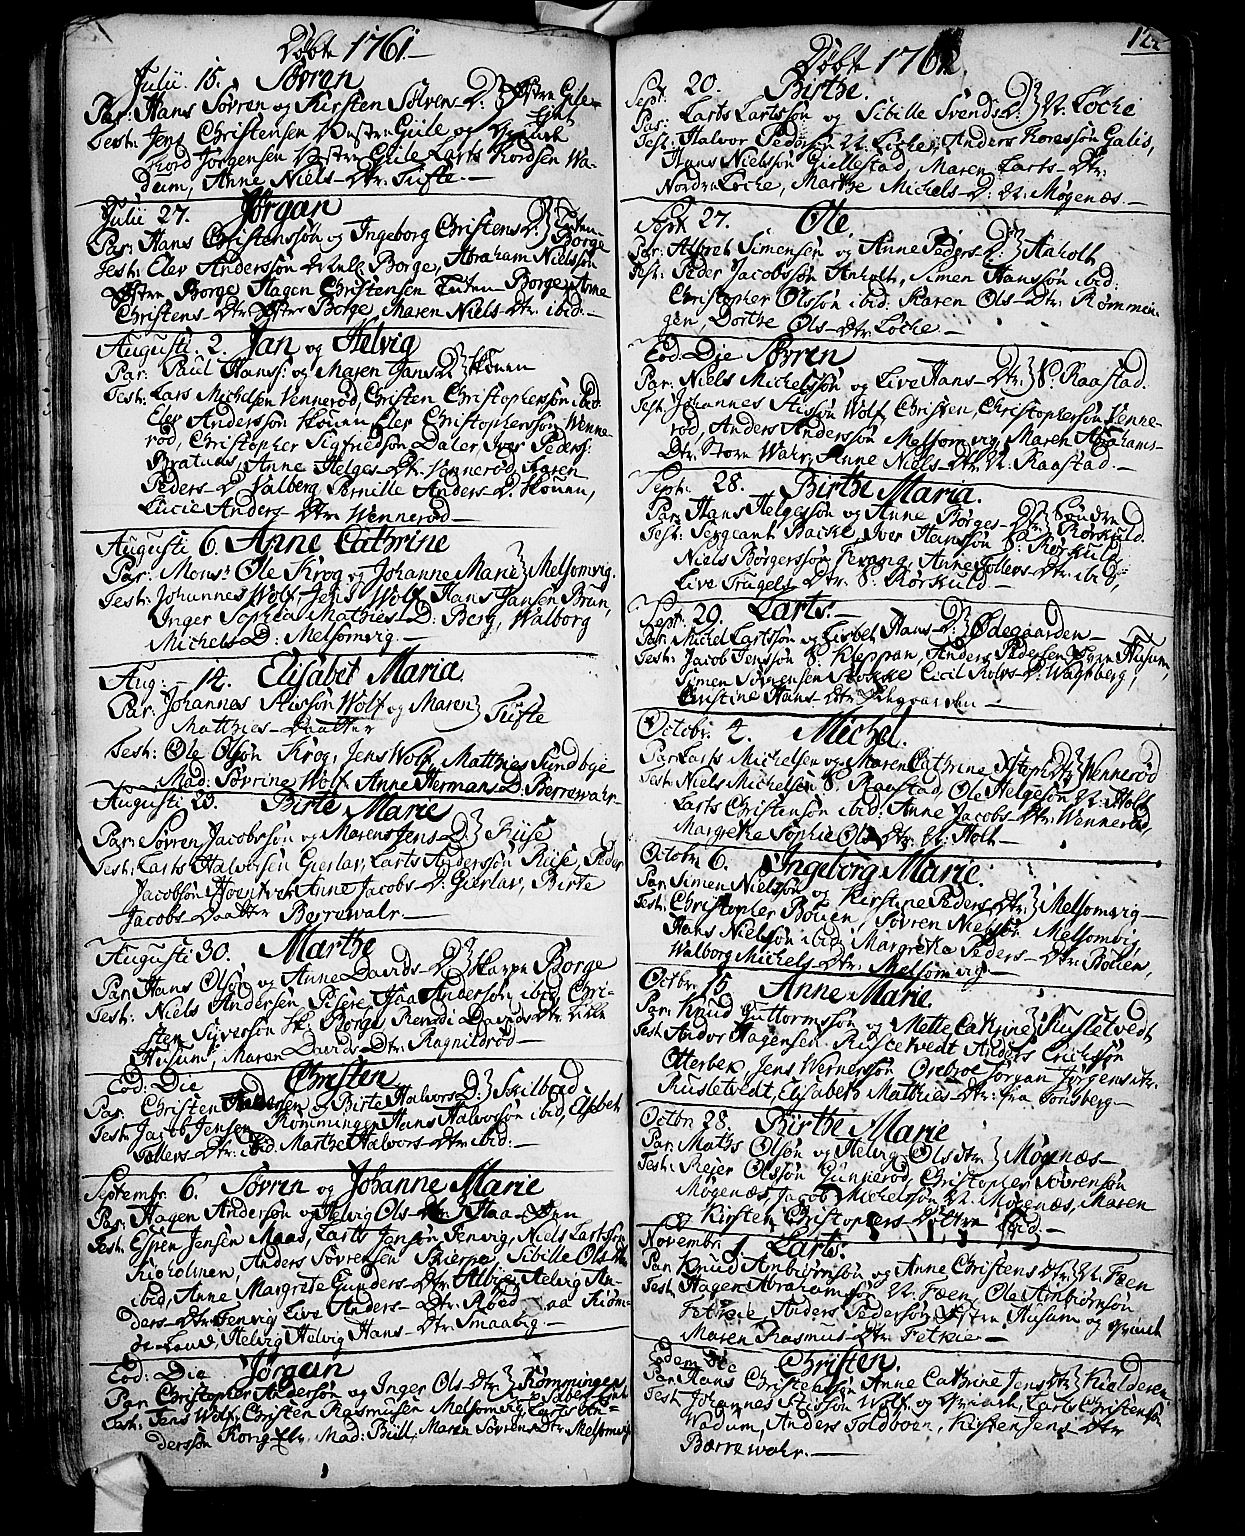 Döbte 1761.
Julii 15. Søvren
Par: Hans Søvren og Kirsten Sølven D: Østre Giile
Test: Jens Christensen Vestre Giile og
Tord Jørgensen Vestre Giile Larts Tordsen Wa-
deim, Anne Niels-Dtr: Tufte.
Julii 27. Jørgan
Par: Hans Christenssøn og Ingeborg Christens D: Borge
Test: Elev Anderssøn Borge, Abraham Nielssøn
Østre Borge Hagen Christensen Borge, Anne
Christens-Dtr: Østre Borge, Maren Niels-Dtr: ibid.
Augusti. 2. Jan og Helvig
Par: Paul Hans: og Maren Jans D: Skouen
Test: Lars Michelsen Vennerød, Christen Christopherssøn ibid
Elev Anderssøn Skouen Elev Christopherssøn Wenne-
rød, Christopher Sigfridsøn Daler, Iver Peders:
Bratuds, Anne Helges-Dtr: Vennerød, Karen
Peders-D: Valberg Pernille Anders-D: Skouen,
Lucie Anders Dtr: Wennerød
Augusti 6. Anne Cathrine
Par: Monsr Ole Krog og Johanne Marie Melsomvig.
Test: Johannes Wolf Jens Wolf Hans Jansen Brun,
Inger Sophia Mathies-D: Berg, Walborg
Michels D: Melsomvig.
Aug: 14. Elisabet Maria
Par: Johannes Stissøn Wolf og Maren Tufte
Matthies-Daatter
Test: Ole Olsøn Krog, Jens Wolf, Matthies Sundbye
Mad: Søvrine Wolf Anne Hermans D: Berrewahr
Augusti 23. Birte Marie
Par: Søvren Jacobssøn og Maren Jens D: Riise
Test: Larts Halvorsen Gierlav, Larts Anderssøn Riise, Peder
Jacobssøn Anne Jacobs-D: Gierlav, Birte
Jacobs-Daatter Berrewahr.
Augusti 30. Marthe
Par: Hans Olsøn og Anne Davids-D: Borge
Test: Niels Andersen Haa Andersøn ibid, Chri-
sten Siversøn Borge Davids Dtr:
Husum, Maren Davids-Dtr: Ragnildrød
Eod: Die Christen
Par: Christen Andersen og Birte Halvors D: Skilbred
Test: Jacob Jensen Rommingen Hans Halvorsøn ibid, Elsebet
Tollevs-Dtr: ibid Marthe Halvors-Dtr: ibid:
Septembr: 6. Søvren og Johanne Marie
Par: Hagen Andersøn og Helvig Ols-Dtr: Haa-Øen
Test: Espen Jensen Maas, Larts Jensøn Jenvig, Niels Lartssøn
Anders Søvrensen Skierpe, Sibille Ols Dtr:
ibid, Anne Margrete Gunders-Dtr: Albie Helvig An-
ders-Dtr: Jenvig Live Anders-Dtr:
Helvig Hans-Dtr: Smaavig
Eod: Die Jørgen
Par: Christopher Andersøn og Inger Ols-Dtr: Rømmingen
Test: Jens Wolf, Christen Rasmusen Melsomvig,
derssøn Mad: Bull. Maren Søvrens-Dtr: Melsomvig
122
Döbte 1761.
Sept: 20. Birthe.
Par: Larts Lartssøn og Sibille Svends D: N: Løche
Test: Halvor Pedersen N: Løche, Anders Galis,
Hans Nielssøn Giellestad, Maren Larts-Dtr:
Nordre Løche, Marthe Michels-D: N: Møgenæs.
Sept: 27. Ole.
Par: Alfvet Simensøn og Anne Peders D: Aaholt
Test: Peder Jacobssøn Aaholt, Simen Hanssøn ibid:
Christopher Olssøn ibid. Karen Ols-Dtr: Rømmin-
gen, Dorthe Ols-dtr: Løche
Eod. Die Søvren
Par: Niels Michelssøn og Live Hans-Dtr: S: Raastad.
Test: Johannes Stissøn Wolf, Christen, Christophersøn Venne-
rød, Anders Anderssøn Melsomvig, Maren Abrahams-
Dtr: Store Wahr, Anne Niels-Dtr: N: Raastad.
Septr: 28. Birthe Maria.
Par: Hans Helgessøn og Anne Børges-Dtr: Søndre Rørkuld.
Test: Sergeant Backe, Iver Hanssøn S: Rørkuld,
Niels Børgerssøn Anne Tollevs-Dtr: ibid,
Live Trugels-Dtr: S: Rørkuld
Septr: 29. Larts.
Par: Michel Lartssøn og Lisbet Hans-D: Ødegaarden
Test: Jacob Jenssøn S: Kleppan, Anders Pedersen Husum,
Simen Sørensen Cicil Rolvs-D: Wagsberg,
Christine Hans-dtr: Ødegaarden
Octobr: 4. Michel.
Par: Larts Michelsen og Maren Cathrine Wennerød
Test: Niels Michelsen S: Raastad, Ole Helgesøn N: Holt
Larts Christensøn ibid: Anne Jacobs-Dtr: Wennerød,
Margretha Sophie Ols Dtr: N: Holt
Octobr: 6. Ingeborg Marie.
Par: Simen Nielssøn og Kirstine Peders-Dtr: Melsomvig
Test: Christopher Bøuen, Søvren Nielssøn Melsomvig,
Hans Nielssøn ibid, Margretha Peders-Dtr: Bøuen,
Walborg Michels-Dtr: Melsomvig
Octobr: 15. Anne Marie.
Par: Knud Guttormssøn og Mette Cathrine Russletvedt
Test: Andor Hagensen Russletvedt Anders Erichssøn
Otterbek, Jens Wernersøn Orebroe Jørgan Jørgens dtr:
Russletvedt, Elisabeth Mathies-Dtr: fra Tønsberg
Octobr: 28. Birthe Marie
Par: Maths Olsøn og Helvig Ols dtr: Møgenæs
Test: Reier Olssøn Gunnerød, Christopher Sørensøn
Møgenæs, Jacob Michelssøn N: Møgenæs, Maren
og Kirsten Christophers Døttre ibid
Novembr: 1. Larts.
Par: Knud Anbiørnsøn og Anne Christens dtr: N: Fæen
Test: Hagen Abrahamssøn N: Fæen, Ola Anbiørnsøn
Fetkie Anders Pedersøn Østre Husum og qvinde
Maren Rasmus-Dtr: Fetkie
Edem Die Christen.
Par: Hans Christenssøn Anne Cathrine Jens Dtr: Kielderen
Test: Johannes Stissøn Wolf og Larts Christenssøn
Wadum, Anders Toldboen, Kirsten Jens-Dtr:
Børrewahr.